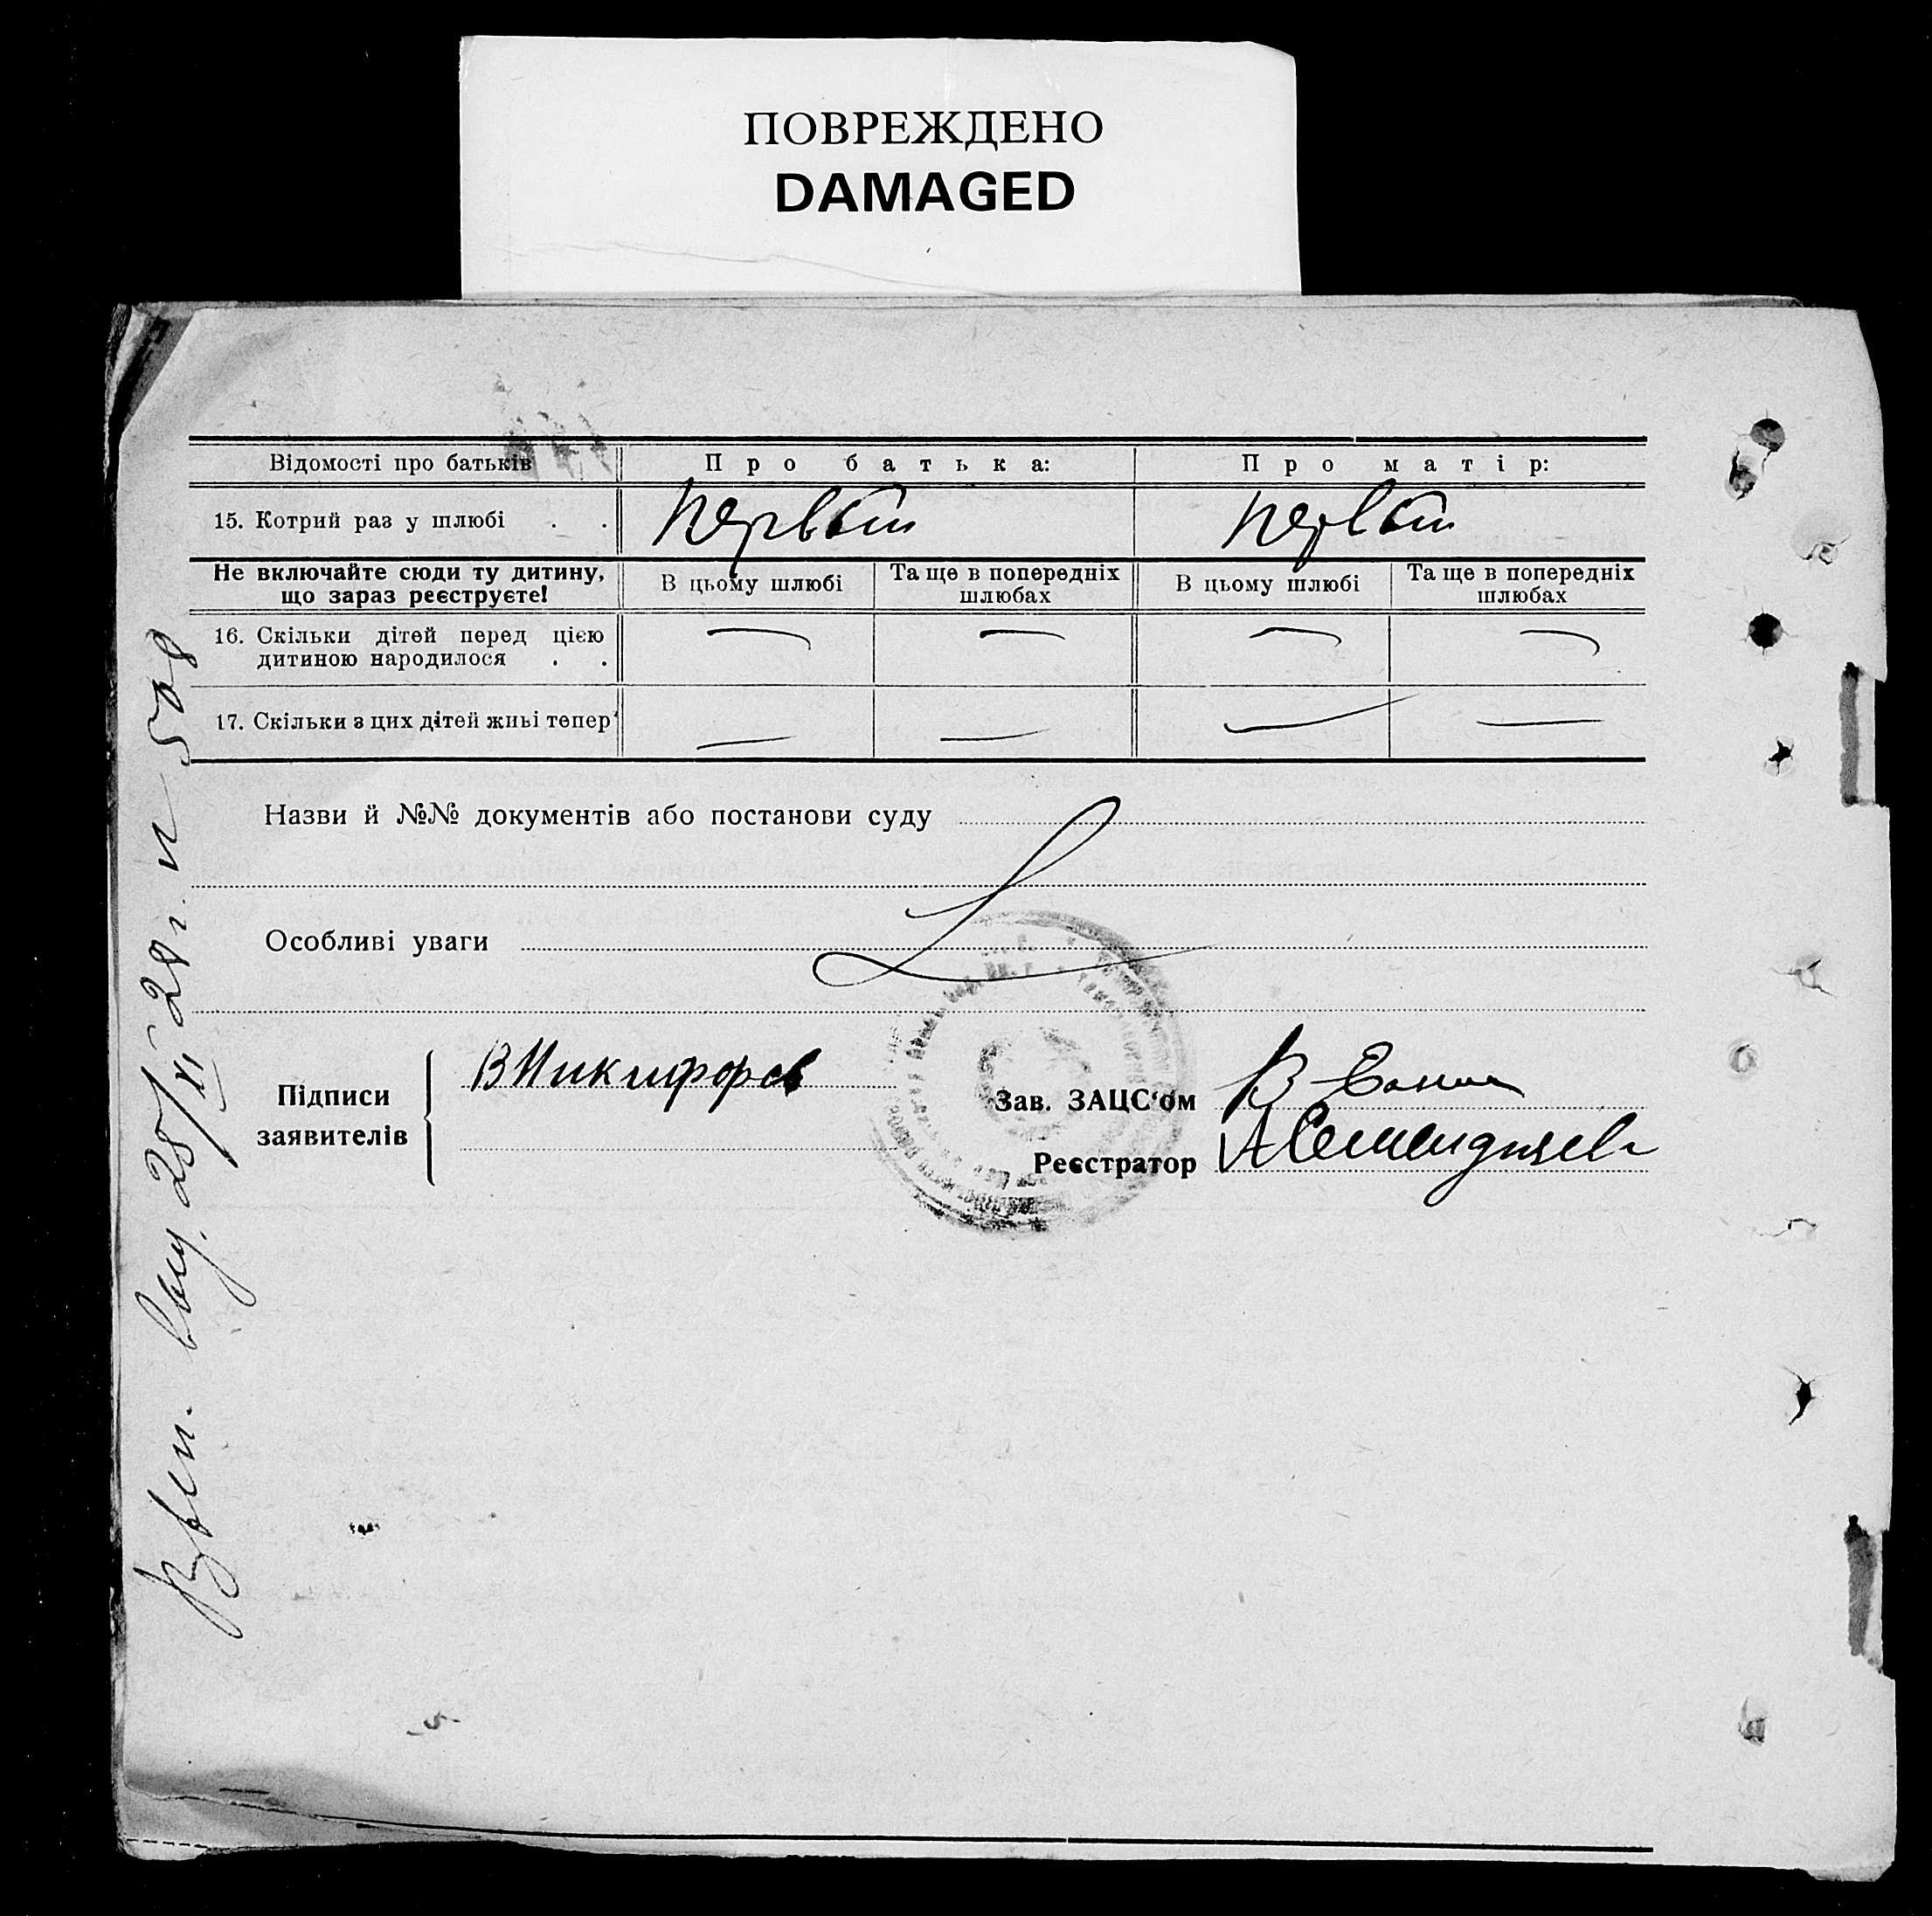 ПОВРЕЖДЕНО
DAMAGED
Відомості про батьків
Про батька:
Про матір:
15. Котрий раз у шлюбі . .
первый
первый
Не включайте сюди ту дитину, що зараз реєструєте!
В цьому шлюбі
Та ще в попередніх шлюбах
В цьому шлюбі
Та ще в попередніх шлюбах
16. Скільки дітей перед цією
дитиною народилося . .
— — — —
17. Скільки з цих дітей живі тепер
— — — —
Назви й №№ документів або постанови суду
Особливі уваги
Підписи
заявителів
В Никифоров
Зав. ЗАЦС'ом
В
Реєстратор
выд. 28/XI 28 г. № 508